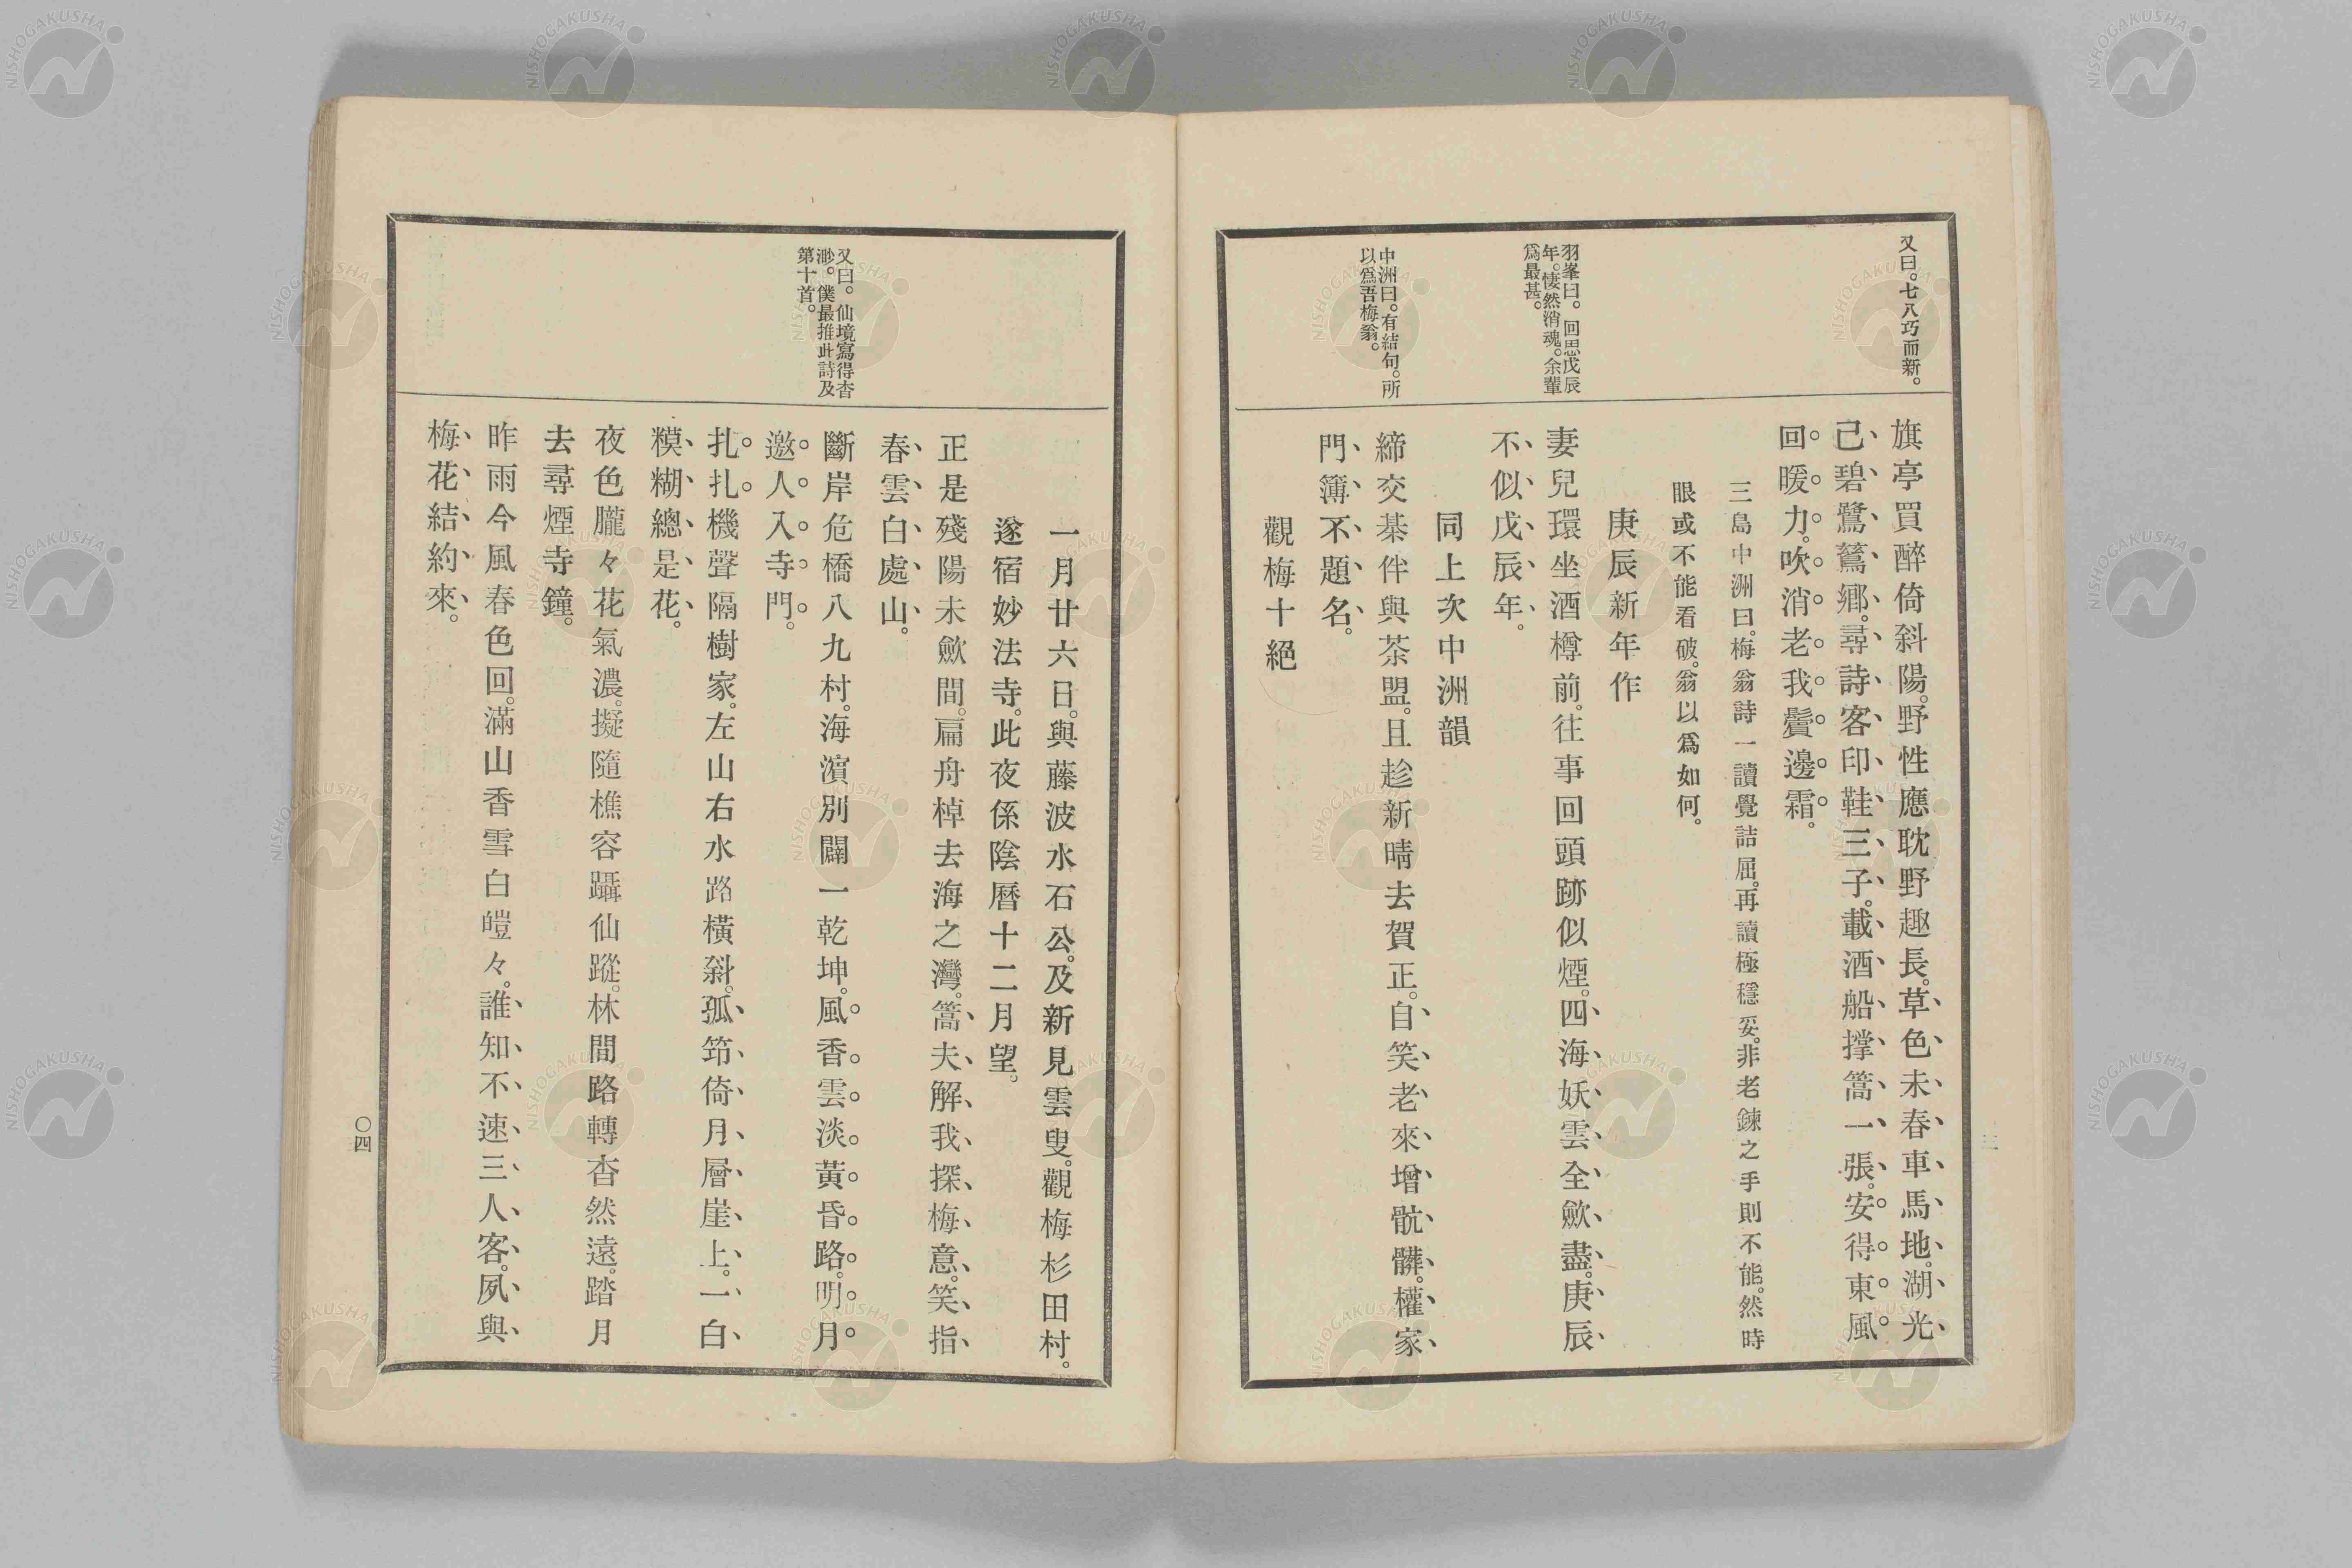 又曰。七八巧而新。
旗亭買醉倚斜陽。野性應耽野趣長。草色未春車馬地。湖光
己碧鷺鶿鄉。尋詩客印鞋三子。載酒船撐篙一張。安得東風
回暖力。吹消老我鬢邊霜。
三島中洲曰。梅翁詩一讀覺詰屈。再讀極穩妥。非老鍊之手則不能。然時
眼或不能看破。翁以爲如何。
庚辰新年作
羽峯曰。回思戊辰
年。悽然消魂。余輩
爲最甚。
妻兒環坐酒樽前。往事回頭跡似煙。四海妖雲全歛盡。庚辰
不似戊辰年。
同上次中洲韻
中洲曰。有結句。所
以爲吾梅翁。
締交棊伴與茶盟。且趁新晴去賀正。自笑老來增骯髒。權家
門簿不題名。
觀梅十絕
一月廿六日。與藤波水石公。及新見雲叟。觀梅杉田村。
遂宿妙法寺。此夜係陰曆十二月望。
正是殘陽未歛間。扁舟棹去海之灣。篙夫解我探梅意。笑指
春雲白處山。
又曰。仙境寫得杳
渺。僕最推此詩及
第十首。
斷岸危橋八九村。海濵別闢一乾坤。風香雲淡黃昏路。明月
邀人入寺門。
扎扎機聲隔樹家。左山右水路橫斜。孤筇倚月層崖上。一白
糢糊總是花。
夜色朧々花氣濃。擬隨樵容躡仙蹤。林間路轉杳然遠。踏月
去尋煙寺鐘。
昨雨今風春色回。滿山香雪白皚々。誰知不速三人客。夙與
梅花結約來。
三
〇四
NISHOGAKUSHA